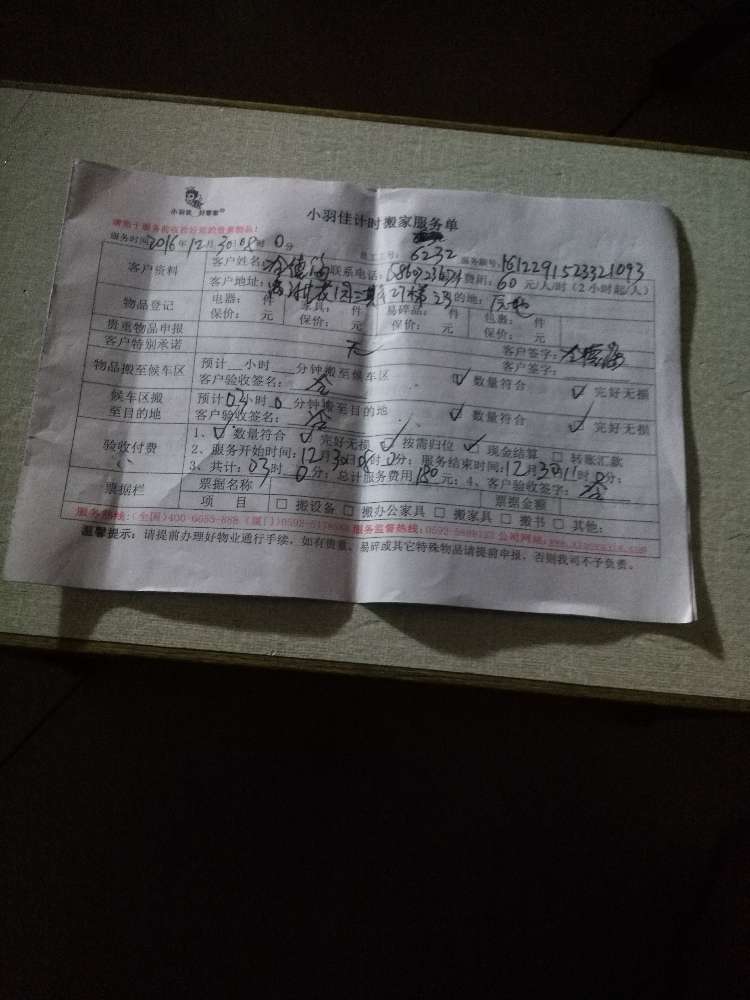 小羽佳 好管家
小羽佳计时搬家服务单
请勿于服务前收拾好您的贵重物品!
服务时间 2016年12月30日08时0分 员工工号: 6232 服务编号: 1612291523321093
客户资料 客户姓名: 联系电话: 费用: 60元/人/时(2小时起/人)
客户地址: 目的地:
物品登记 电器: 件 家具: 件 易碎品: 件 包裹: 件
保价: 元 保价: 元 保价: 元 保价: 元
贵重物品申报 无 客户签字:
客户特别承诺 客户签字:
物品搬至候车区 预计__小时___分钟搬至候车区 ✓ 数量符合 ✓ 完好无损
客户验收签名:
候车区搬至目的地 预计03小时0分钟搬至目的地 ✓ 数量符合 ✓ 完好无损
客户验收签名:
验收付费 1、☑ 数量符合 ☑ 完好无损 ☑ 按需归位 ☑ 现金结算 □ 转账汇款
2、服务开始时间:12月30日08时0分; 服务结束时间:12月30日11时0分;
3、共计:03时0分;总计服务费用180元;4、客户验收签字:
票据栏 票据名称 票据金额
项 目 □ 搬设备 □ 搬办公家具 □ 搬家具 □ 搬书 □ 其他:
服务热线:(全国)400-6655-888 (厦门) 服务监督热线: 公司网站:
温馨提示:请提前办理好物业通行手续,如有贵重、易碎或其它特殊物品请提前申报,否则我司不予负责。